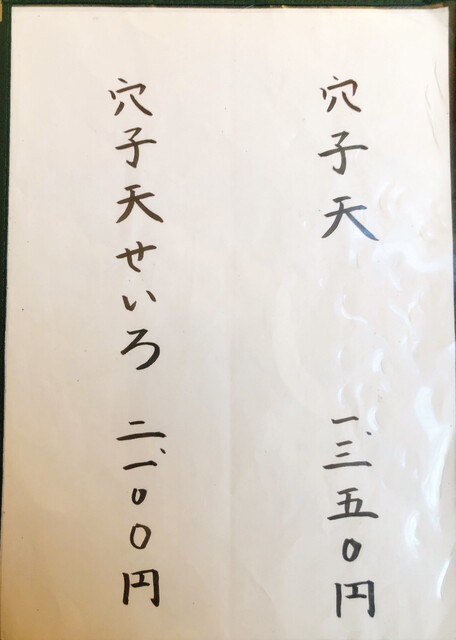 穴子天 一、三五〇円
穴子天せいろ 二、一〇〇円